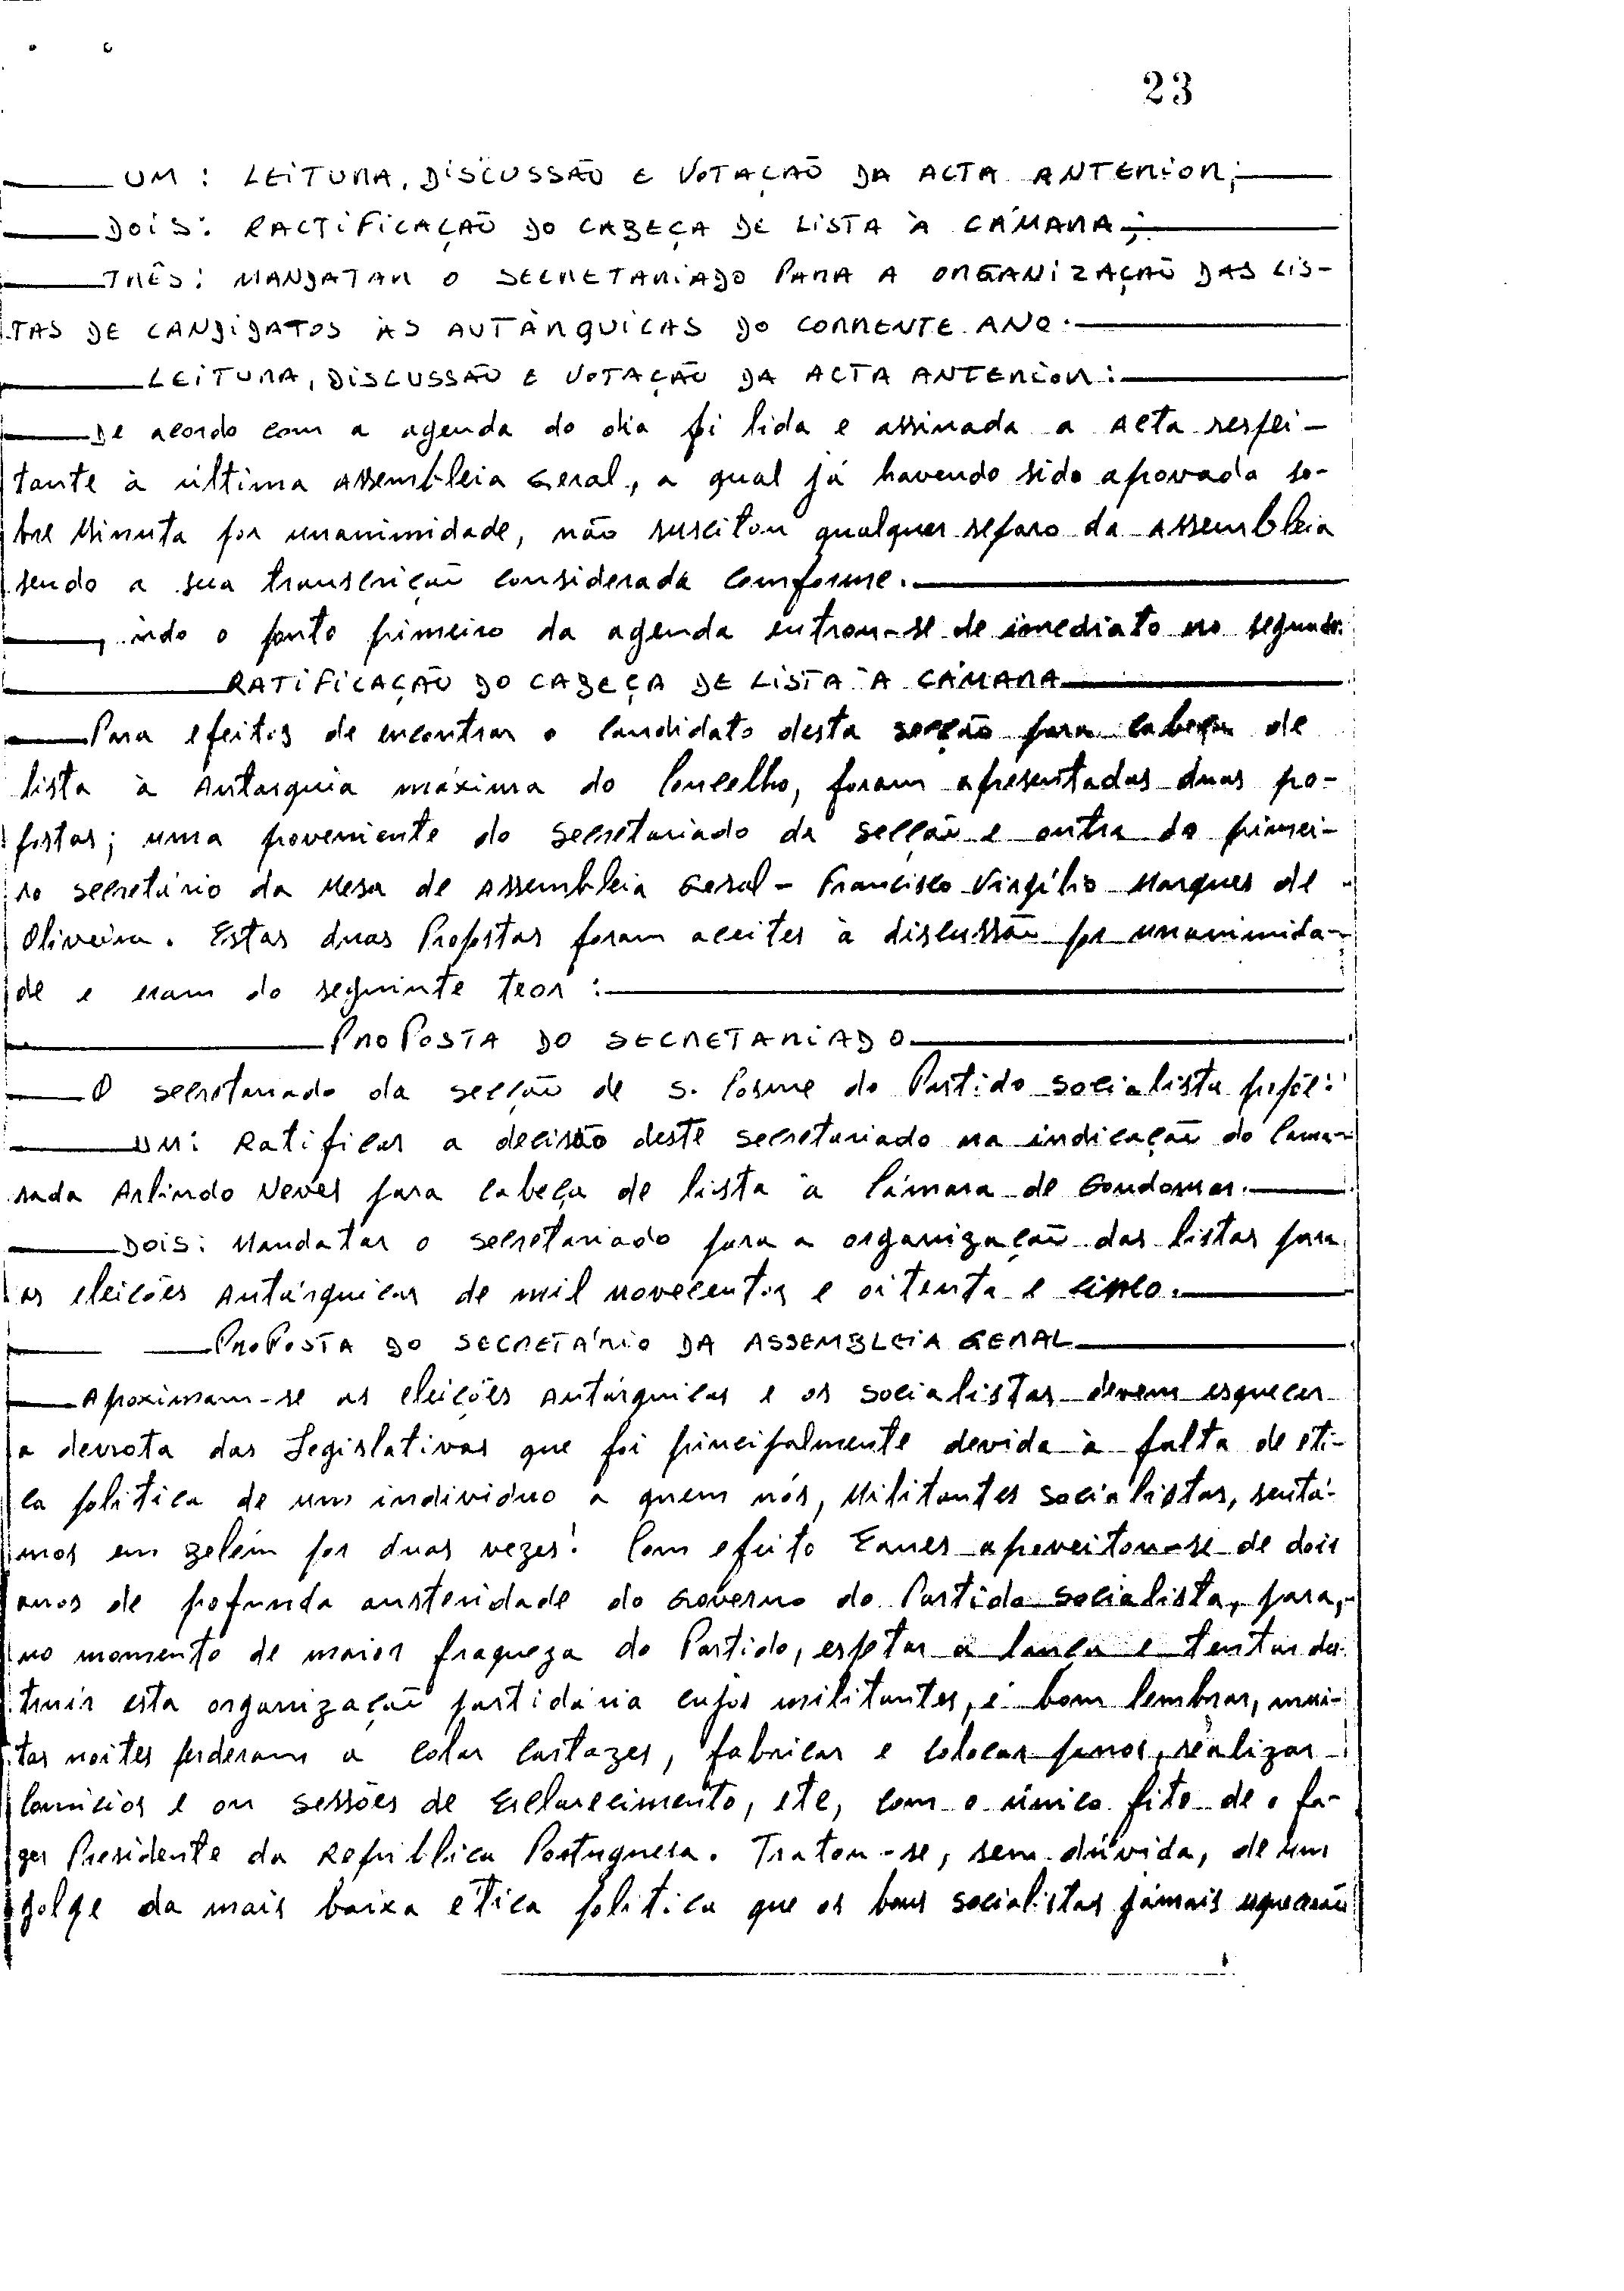 23
UM: LEITURA, DISCUSSÃO E VOTAÇÃO DA ACTA ANTERIOR;
DOIS: RACTIFICAÇÃO DO CABEÇA DE LISTA À CÂMARA;
TRÊS: MANDATAR O SECRETARIADO PARA A ORGANIZAÇÃO DAS LIS-
TAS DE CANDIDATOS ÀS AUTÁRQUICAS DO CORRENTE ANO.
LEITURA, DISCUSSÃO E VOTAÇÃO DA ACTA ANTERIOR:
De acordo com a agenda do dia foi lida e assinada a Acta respei-
tante à última Assembleia Geral, a qual já havendo sido aprovada so-
bre Minuta por unanimidade, não suscitou qualquer reparo da Assembleia
sendo a sua transcrição considerada comforme.
o ponto primeiro da agenda entrou-se de imediato no segundo.
RATIFICAÇÃO DO CABEÇA DE LISTA À CÂMARA
Para efeitos de encontrar o candidato desta secção para cabeça de
lista à Autarquia máxima do Concelho, foram apresentadas duas pro-
postas; uma proveniente do Secretariado da Secção e outra do primei-
ro secretário da Mesa de Assembleia Geral - Francisco Virgílio Marques de
Oliveira. Estas duas Propostas foram aceites à discussão por unanimida-
de e eram do seguinte teor:
PROPOSTA DO SECRETARIADO
O Secretariado da Secção de S. Cosme do Partido Socialista propõe:
UM: Ratificar a decisão deste Secretariado na indicação do Cama-
rada Arlindo Neves para cabeça de lista à Câmara de Gondomar.
DOIS: Mandatar o Secretariado para a organização das listas para
as eleições Autárquicas de mil novecentos e oitenta e cinco.
PROPOSTA DO SECRETÁRIO DA ASSEMBLEIA GERAL
Aproximam-se as eleições Autárquicas e os Socialistas devem esquecer
a derrota das Legislativas que foi principalmente devida à falta de éti-
ca política de um individuo a quem nós, Militantes Socialistas, sentá-
mos em Belém por duas vezes! Com efeito Eanes aproveitou-se de dois
anos de profunda austeridade do Governo do Partido Socialista, para,
no momento de maior fraqueza do Partido, espetar a lança e tentar des-
truir esta organização partidária cujos militantes, é bom lembrar, mui-
tas noites perderam a colar cartazes, fabricar e colocar panos, realizar
Comícios e ou Sessões de Esclarecimento, etc, com o único fito de o fa-
zer Presidente da República Portuguesa. Tratou-se, sem dúvida, de um
golpe da mais baixa ética política que os bons socialistas jamais esquecerão